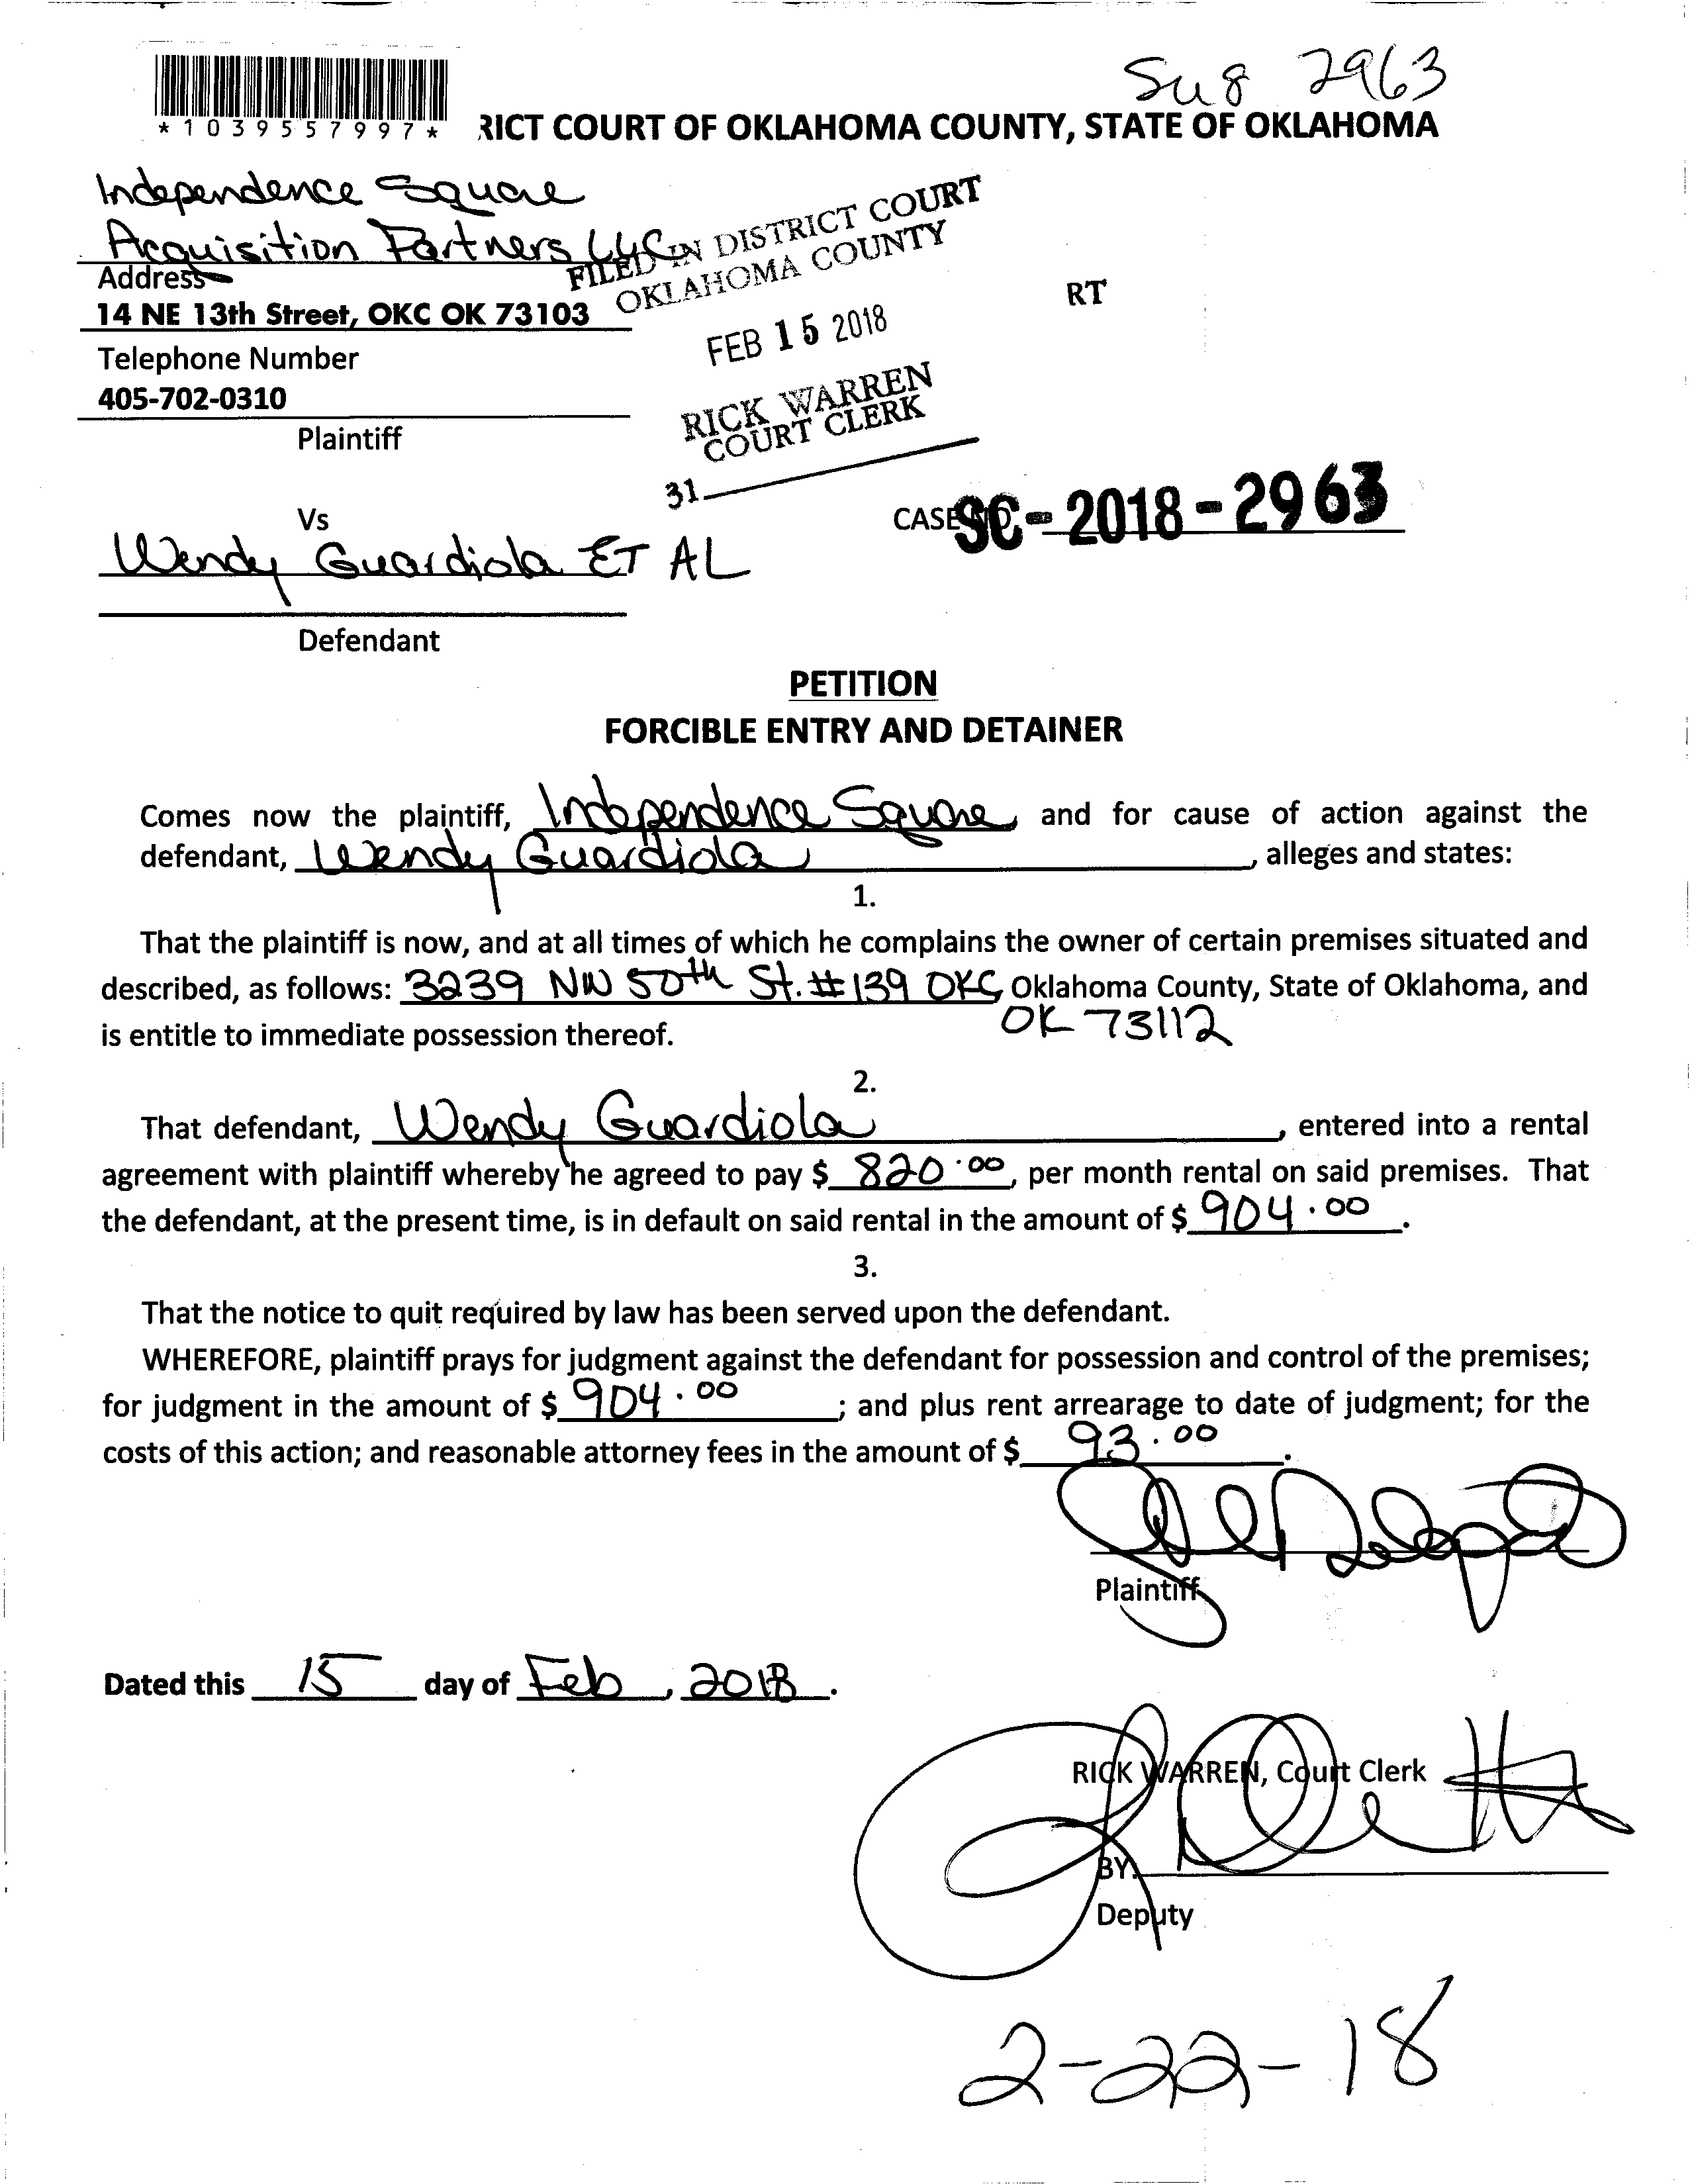 Su 8 2963
*1039557997*
RICT COURT OF OKLAHOMA COUNTY, STATE OF OKLAHOMA
Independence Square
Acquisition Partners LLC
Address
14 NE 13th Street, OKC OK 73103
Telephone Number
405-702-0310
Plaintiff
FILED IN DISTRICT COURT
OKLAHOMA COUNTY
FEB 15 2018
RICK WARREN
COURT CLERK
31
RT
Vs
CASE NO. SC-2018-2963
Wendy Guardiola ET AL
Defendant
PETITION
FORCIBLE ENTRY AND DETAINER
Comes now the plaintiff, Independence Square, and for cause of action against the
defendant, Wendy Guardiola, alleges and states:
1.
That the plaintiff is now, and at all times of which he complains the owner of certain premises situated and
described, as follows: 3239 NW 50th St. #139 OKC, Oklahoma County, State of Oklahoma, and
OK 73112
is entitle to immediate possession thereof.
2.
That defendant, Wendy Guardiola, entered into a rental
agreement with plaintiff whereby he agreed to pay $ 820.00, per month rental on said premises. That
the defendant, at the present time, is in default on said rental in the amount of $ 904.00.
3.
That the notice to quit required by law has been served upon the defendant.
WHEREFORE, plaintiff prays for judgment against the defendant for possession and control of the premises;
for judgment in the amount of $ 904.00; and plus rent arrearage to date of judgment; for the
costs of this action; and reasonable attorney fees in the amount of $ 93.00.
Plaintiff
Dated this 15 day of Feb, 2018.
RICK WARREN, Court Clerk
BY.
Deputy
2-22-18